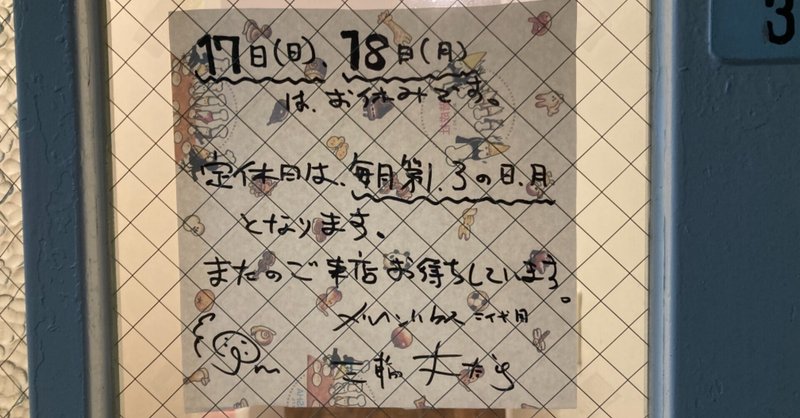 17日(日) 18日(月)
は、お休みです。
定休日は、毎月第1、3の日、月
となります。
またのご来店お待ちしています。
二代目
三輪
3